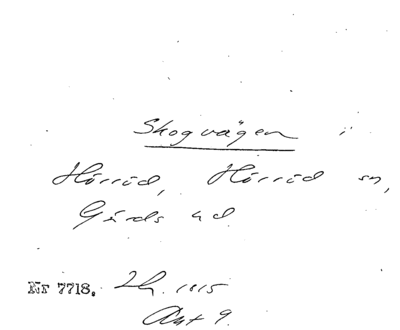 Skogvägen i
Hörröd, Hörröd sn,
Gärds hd.
Nr 7718. 1815
Akt 9.